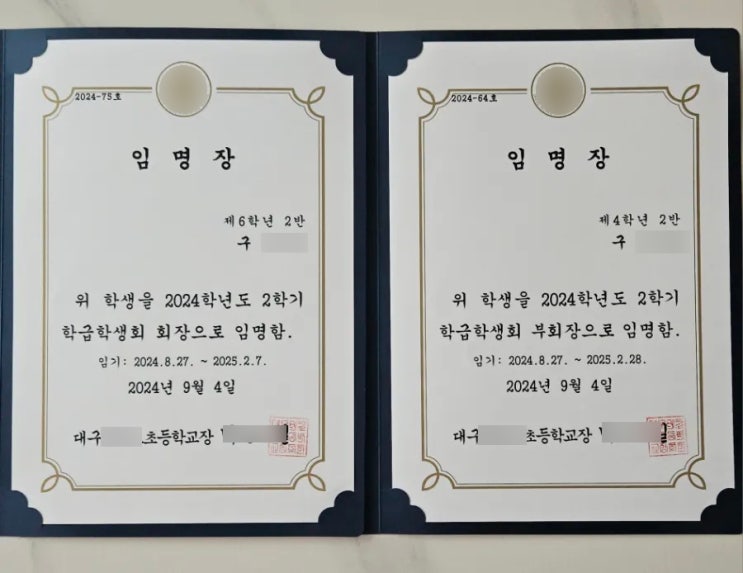 2024-75호
임 명 장
제6학년 2반
구
위 학생을 2024학년도 2학기
학급학생회 회장으로 임명함.
임기: 2024.8.27. ~ 2025.2.7.
2024년 9월 4일
대구 초등학교장
2024-64호
임 명 장
제4학년 2반
구
위 학생을 2024학년도 2학기
학급학생회 부회장으로 임명함.
임기: 2024.8.27. ~ 2025.2.28.
2024년 9월 4일
대구 초등학교장